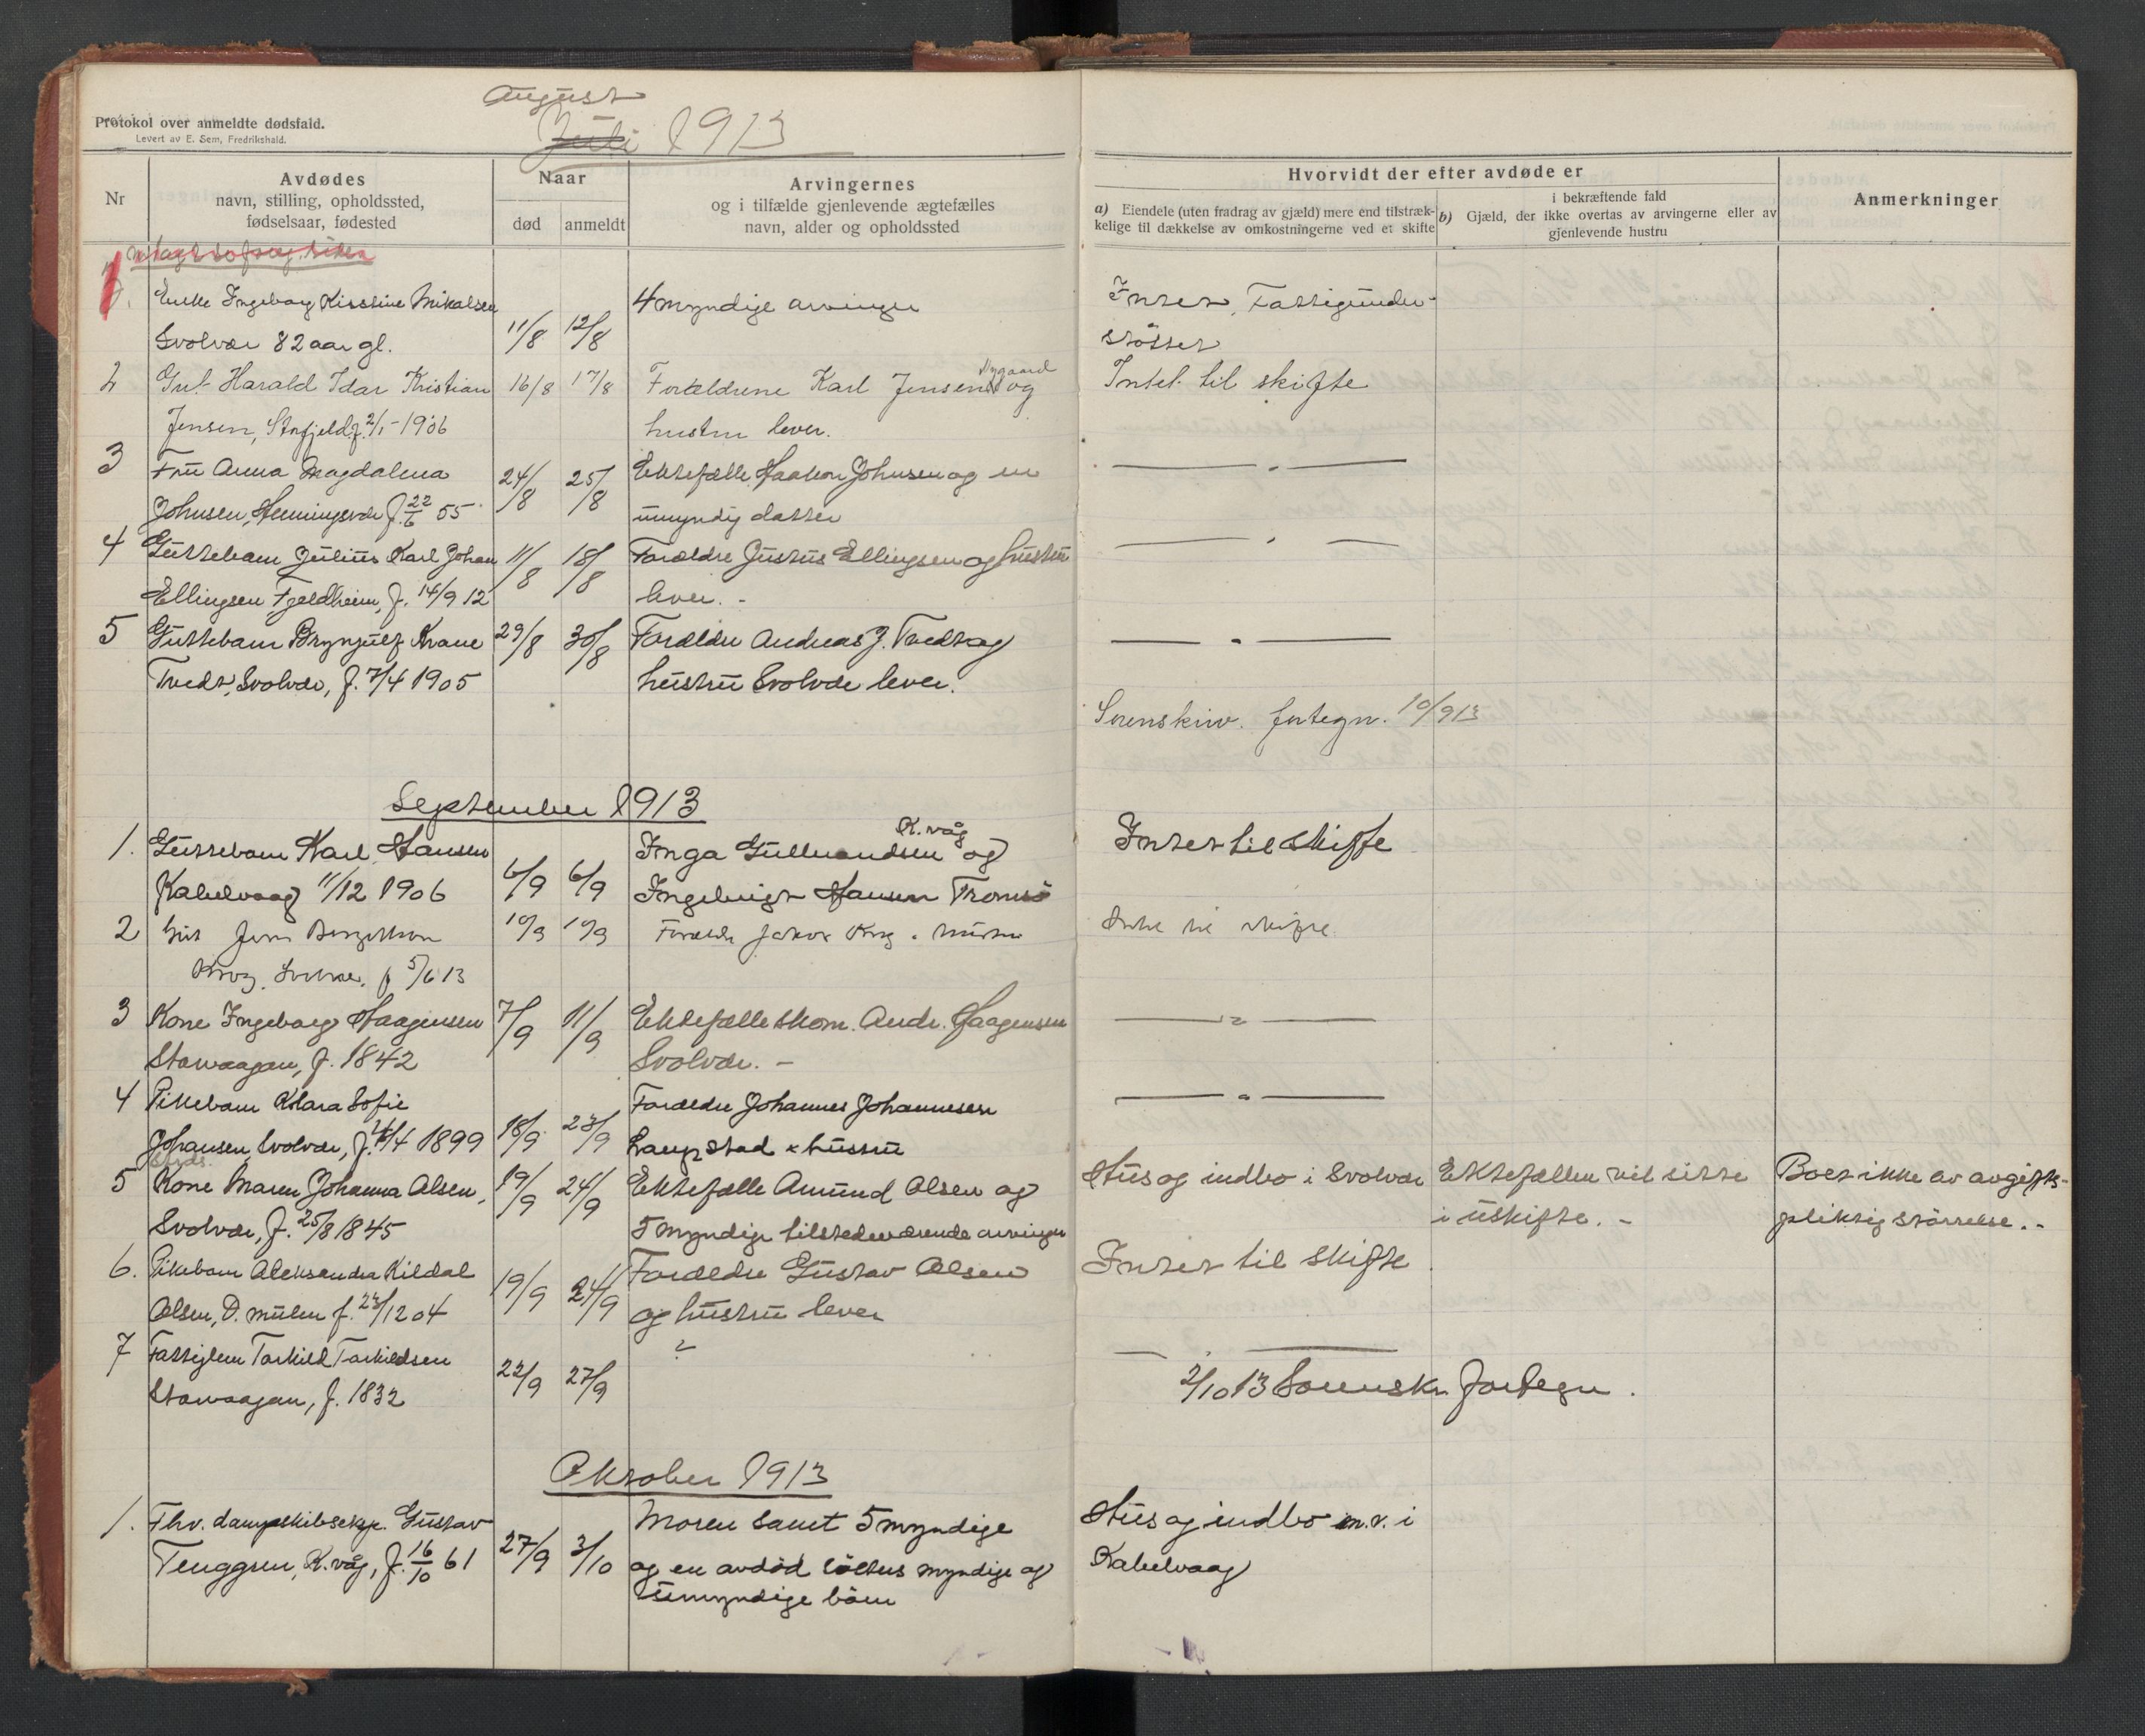 Protokol over anmeldte dødsfald.
Levert av E. Sem, Fredrikshald.
August
Juli 1913
Nr
Avdødes
navn, stilling, opholdssted,
fødselsaar, fødested
Naar
død
anmeldt
Arvingernes
og i tilfælde gjenlevende ægtefælles
navn, alder og opholdssted
Hvorvidt der efter avdøde er
a) Eiendele (uten fradrag av gjæld) mere end tilstræk-
kelige til dækkelse av omkostningerne ved et skifte
i bekræftende fald
b) Gjæld, der ikke overtas av arvingerne eller av
gjenlevende hustru
Anmerkninger
1. Enke Ingeborg Kirstine Mikalsen
Svolvær 82 aar gl.
11/8 12/8
4 myndige arvinger
Intet, Fattigunder-
støttet
2 Gut Harald Idar Kristian
Jensen, Storfjeld f. 2/1-1906
16/8 17/8
Forældrene Karl Jensen Nygaard og
hustru lever.
Intet til skifte
3 Fru Anna Magdalena
Johnsen, Henningsvær f. 22/6 55
24/8 25/8
Ektefælle Haakon Johnsen og en
umyndig datter
— " —
4 Guttebarn Julius Karl Johan
Ellingsen Fjeldheim, f. 14/9 12
11/8 18/8
Forældre Justus Ellingsen og hustru
lever. -
— " —
5 Guttebarn Brynjulf Krane
Tvedt, Svolvær, f. 7/4 1905
29/8 30/8
Forældre Andreas J. Tvedt og
hustru Svolvær lever.
— " —
Sorenskriv. fortegn. 10/9 13
September 1913
1. Guttebarn Karl Hansen
Kabelvaag 11/12 1906
6/9 6/9
Inga Gulbrandsen K.våg og
Ingebrigt Hansen Tromsø
Intet til skifte
2 Gut Jens
Krog, Svolvær, f 5/6 13
10/9 10/9
Forældre Jakob Krog . hustru
Intet til skifte
3 Kone Ingeborg Haagensen
Storvaagan, f. 1842
7/9 11/9
Ektefælle skom. Andr. Haagensen
Svolvær. -
— " —
4 Pikebarn Klara Sofie
Johansen, Svolvær, f. /4 1899
18/9 23/9
Forældre Johannes Johannesen
Laupstad & hustru
— " —
5 Kone Maren Johanna Olsen,
Svolvær, f. 25/8 1845
19/9 24/9
Ektefælle Amund Olsen og
5 myndige tilstedeværende arvinger
Hus og indbo i Svolvær
Ektefællen vil sitte
i uskifte. -
Boet ikke av avgifts-
pliktig størrelse. -
6. Pikebarn Aleksandra Kildal
Olsen, Ø. mulen f. 23/12 04
19/9 24/9
Forældre Gustav Olsen
og hustru lever
Intet til skifte
7 Fattiglem Torkild Torkildsen
Storvaagan, f. 1832
22/9 27/9
?
— " —
2/10 13 Sorenskr. fortegn.
Oktober 1913
1. Fhv. dampskibseksp. Gustav
Tenggren, K.våg, f. 16/10 61
27/9 3/10
Moren samt 5 myndige
og en avdød søsters myndige og
umyndige børn
Hus og indbo m.v. i
Kabelvaag